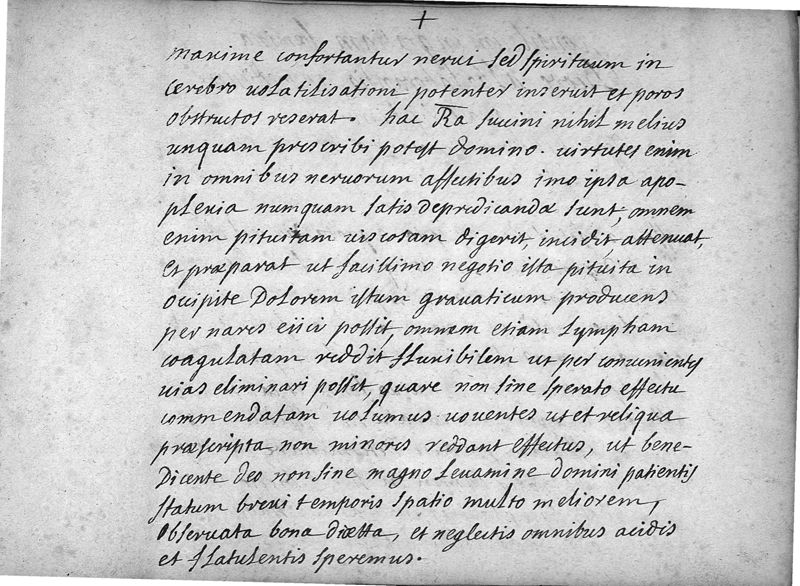 +
maxime confortantur nervi sed spirituum in
cerebro volatilisationi potenter inservit et poros
obstructos reserat. hac Ra succini nihil melius
unquam prescribi potest domino. virtutes enim
in omnibus nervorum affectibus imo ipsa apo-
plexia numquam satis depredicandæ sunt, omnem
enim pituitam viscosam digerit, incidit, attenuat,
et præparat ut facillimo negotio ista pituita in
ocipite Dolorem istum gravaticum producens
per nares eiici possit, omnem etiam lympham
coagulatam reddit fluxibilem ut per convenientes
vias eliminari possit, quare non sine sperato effectu
commendatam volumus voventes ut et reliqua
præscripta non minores reddant effectus, ut bene-
Dicente deo non sine magno levamine domini patientis
statum brevi temporis spatio multo meliorem,
observata bona diætta, et neglectis omnibus acidis
et flatulentis speremus.